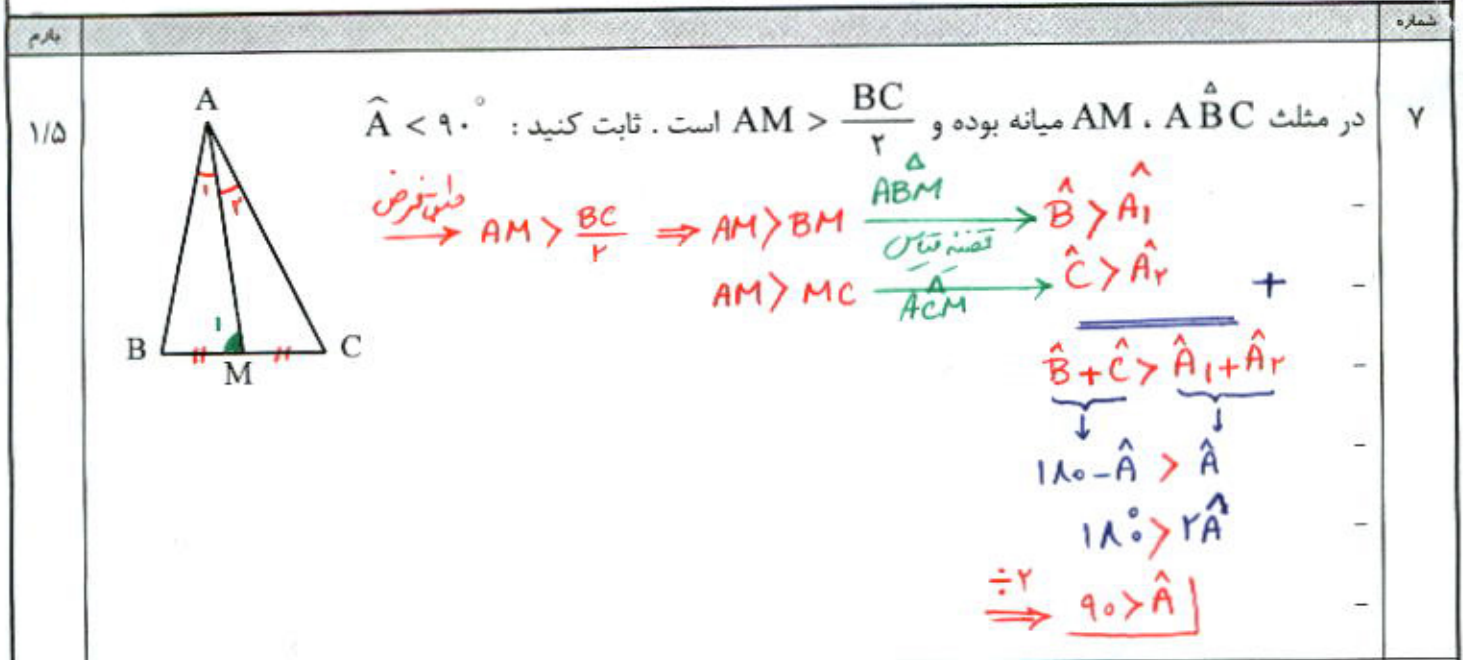 شماره
بارم
۷
در مثلث ABC . AM میانه بوده و AM > BC/۲ است . ثابت کنید : Â < ۹۰°
۱/۵
A
۱ ۲
۱
B M C
طبق فرض → AM > BC/۲ ⇒ AM > BM → ABM قضیه B̂ > Â۱
AM > MC → ACM Ĉ > Â۲ +
B̂ + Ĉ > Â۱ + Â۲
۱۸۰ - Â > Â
۱۸۰° > ۲Â
÷۲ ⇒ ۹۰ > Â